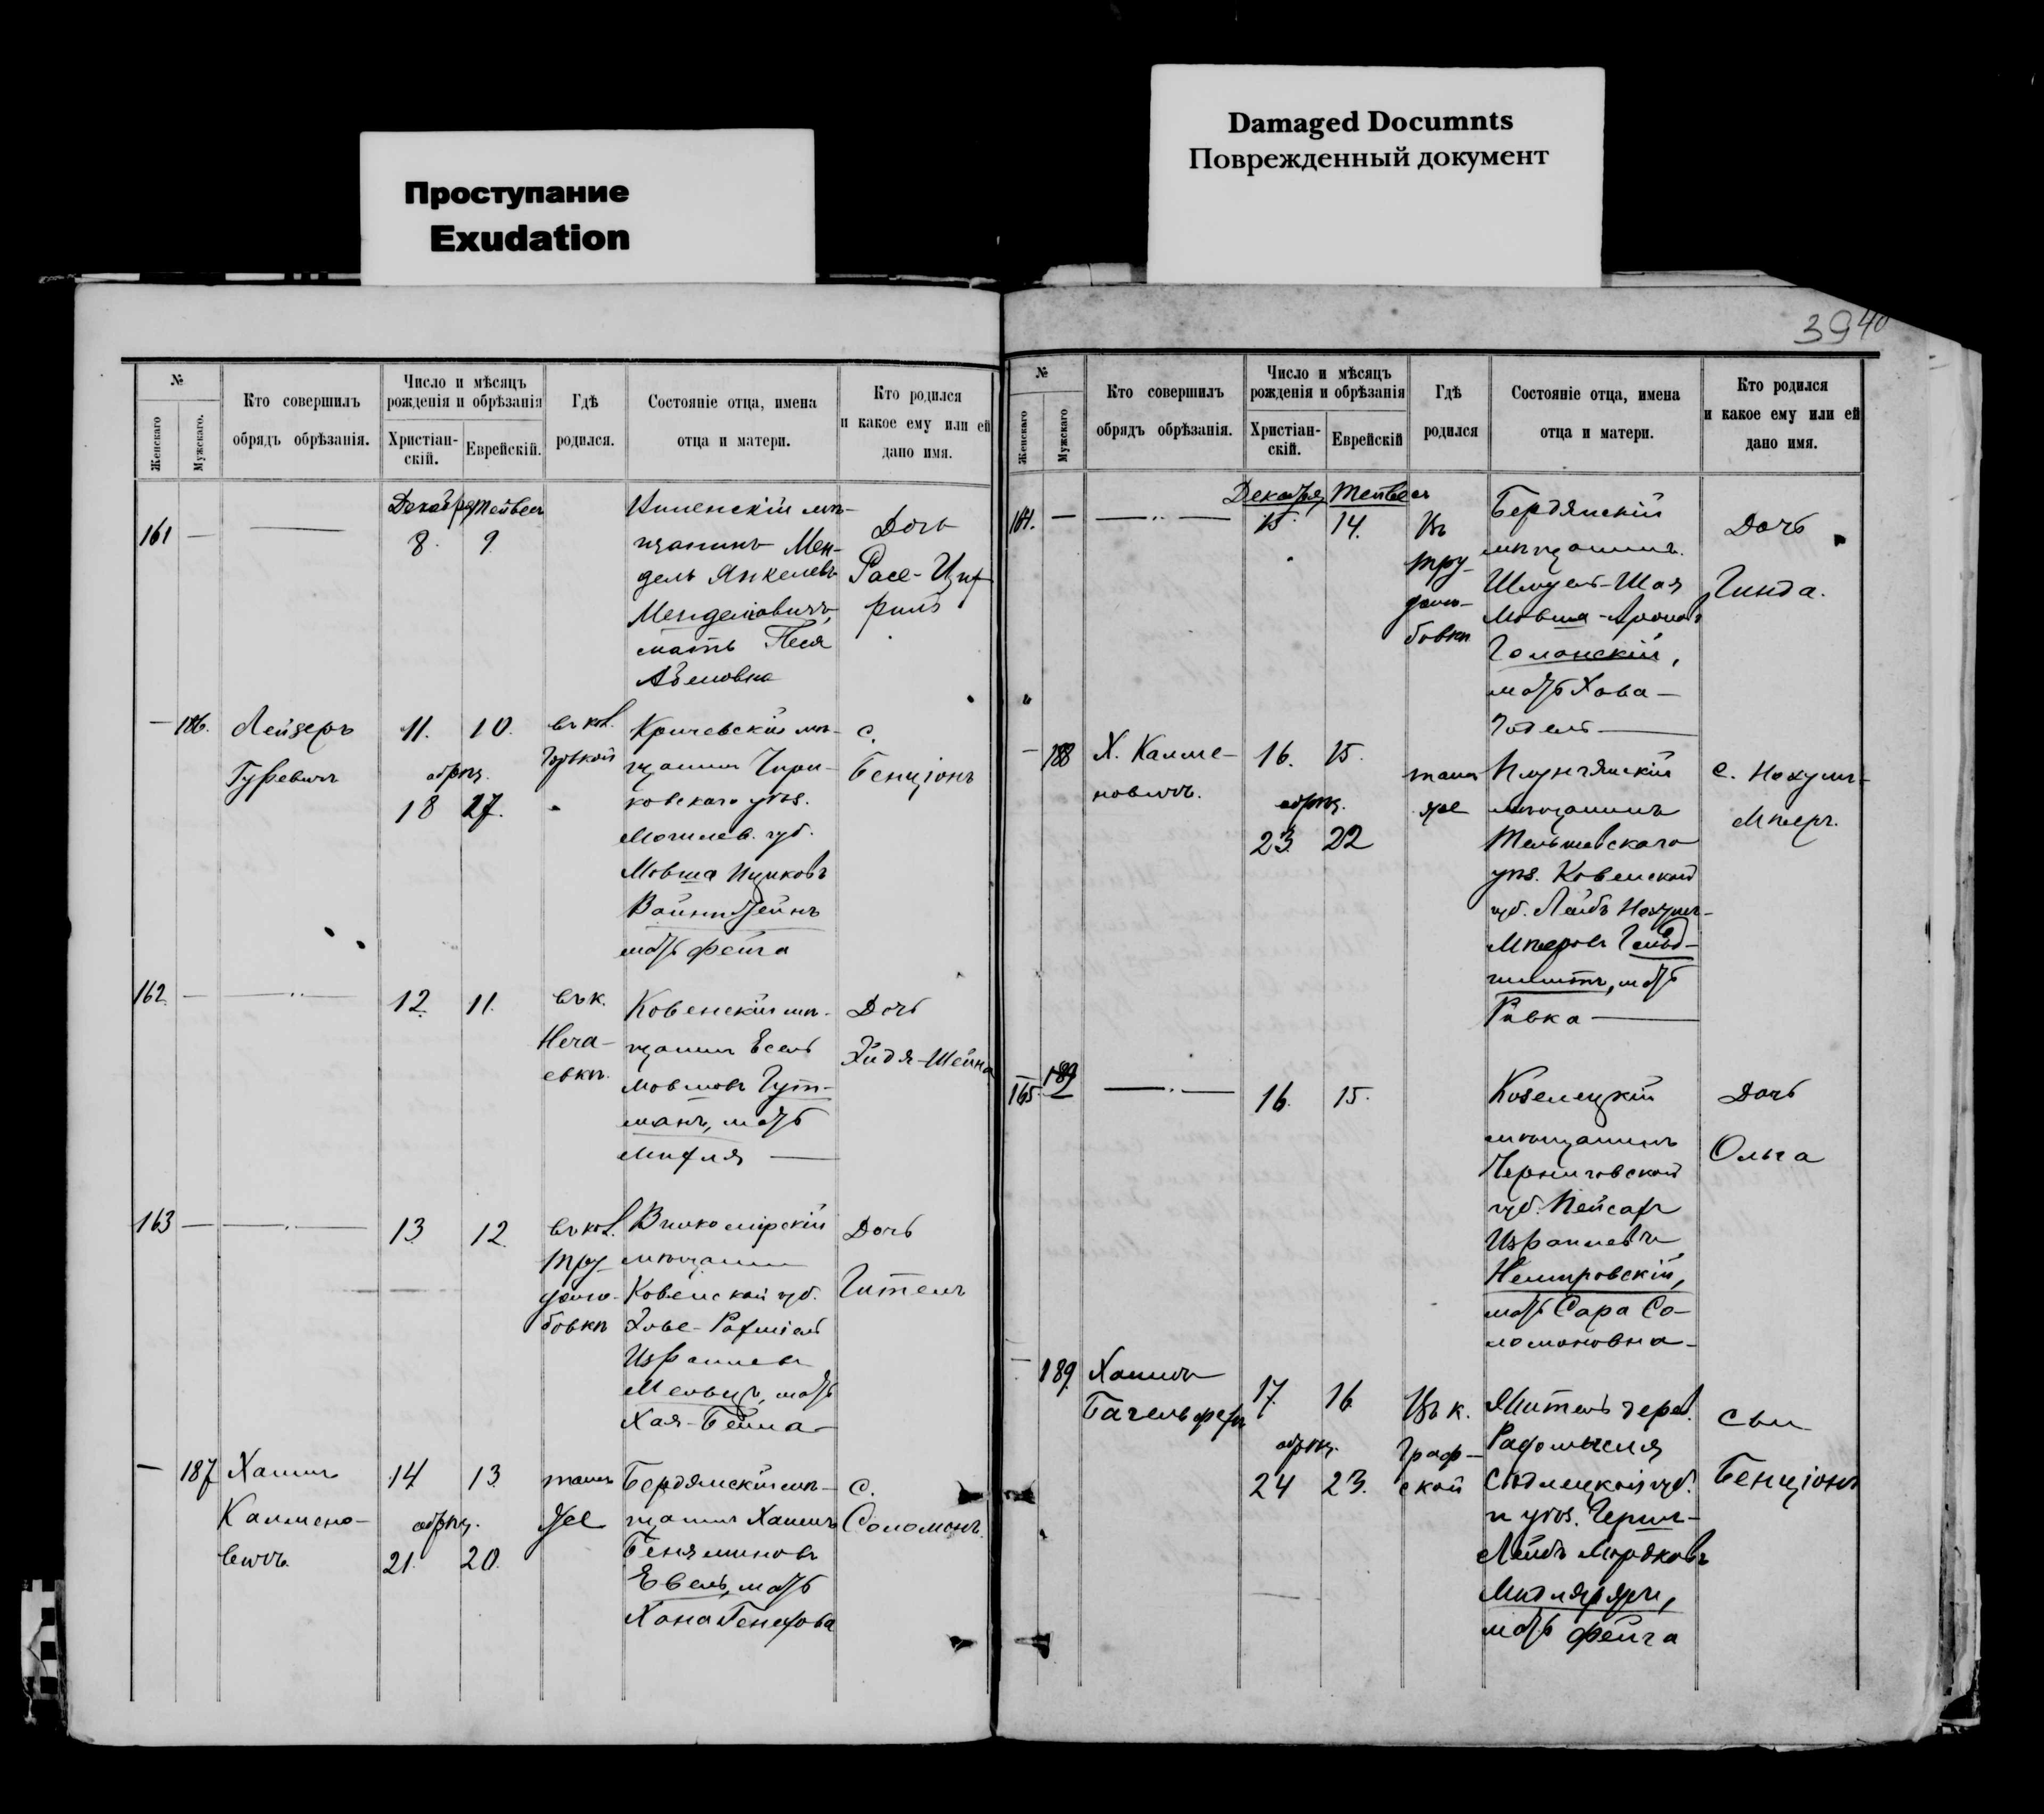 Проступание
Exudation
Damaged Documnts
Поврежденный документ
3940
№
Женскаго
Мужскаго.
Кто совершилъ
обрядъ обрѣзанія.
Число и мѣсяцъ
рожденія и обрѣзанія
Христіан-
скій.
Еврейскій.
Гдѣ
родился.
Состояніе отца, имена
отца и матери.
Кто родился
и какое ему или ей
дано имя.
161
Декабря Тейвесъ
8.
9.
мѣ-
щанинъ Мен-
дель Янкелевъ
Менделовичъ,
мать Песя
Абелювна
Дочь
186.
Лейзеръ
Гуревичъ
11.
10.
обрѣз.
18
27.
въ кол.
Кричевскій мѣ-
щанинъ Чири-
ковскаго уѣз.
Могилев. губ.
Мовша Ицковъ
Вайнштейнъ
мать Фейга
с.
Бенціонъ
162.
12.
11.
въ к.
Неча-
евкѣ.
Ковенскій мѣ-
щанинъ Есель
Мовшовъ Гут-
манъ, мать
Дочь
Эйдя-Шейна
163
13.
12.
въ кол.
Тру-
долю-
бовкѣ
Вилкомірскій
мѣщанинъ
Ковенской губ.
Израилевъ
мать
Хая-Бейла
Дочь
Гитель
187
Хаимъ
Калмено-
вичъ.
14
13.
обрѣз.
21.
20.
тамъ
же
Бердянскій мѣ-
щанинъ Хаимъ
Беняминовъ
Евель, мать
Хана
с.
Соломонъ.
№
Женскаго
Мужскаго
Кто совершилъ
обрядъ обрѣзанія.
Число и мѣсяцъ
рожденія и обрѣзанія
Христіан-
скій.
Еврейскій
Гдѣ
родился
Состояніе отца, имена
отца и матери.
Кто родился
и какое ему или ей
дано имя.
164.
Декабря Тейвесъ
15.
14.
Въ
Тру-
долю-
бовкѣ
Бердянскій
мѣщанинъ
Шмуель-Шая
Мовша-Ароновъ
Голанскій,
мать Хава-
Годель
Дочь
Гинда.
188
Х. Калме-
новичъ.
16.
15.
обрѣз.
23.
22
тамъ
же
Плунгянскій
мѣщанинъ
Тельшевскаго
уѣз. Ковенской
губ. Лейбъ Нохумъ-
Мееровъ
мать
Ривка
с. Нохумъ-
Мееръ.
165.
189
16.
15.
Козелецкій
мѣщанинъ
Черниговской
губ. Пейсахъ
Израилевъ
Немировскій,
мать Сара Со-
ломоновна
Дочь
Ольга
189.
Хаимъ
17.
16
обрѣз.
24
23.
Въ к.
Граф-
ской
Житель дерев.
Радомысля
Сѣдлецкой губ.
и уѣз. Герш-
Лейбъ Мордковъ
мать Фейга
сын
Бенціонъ